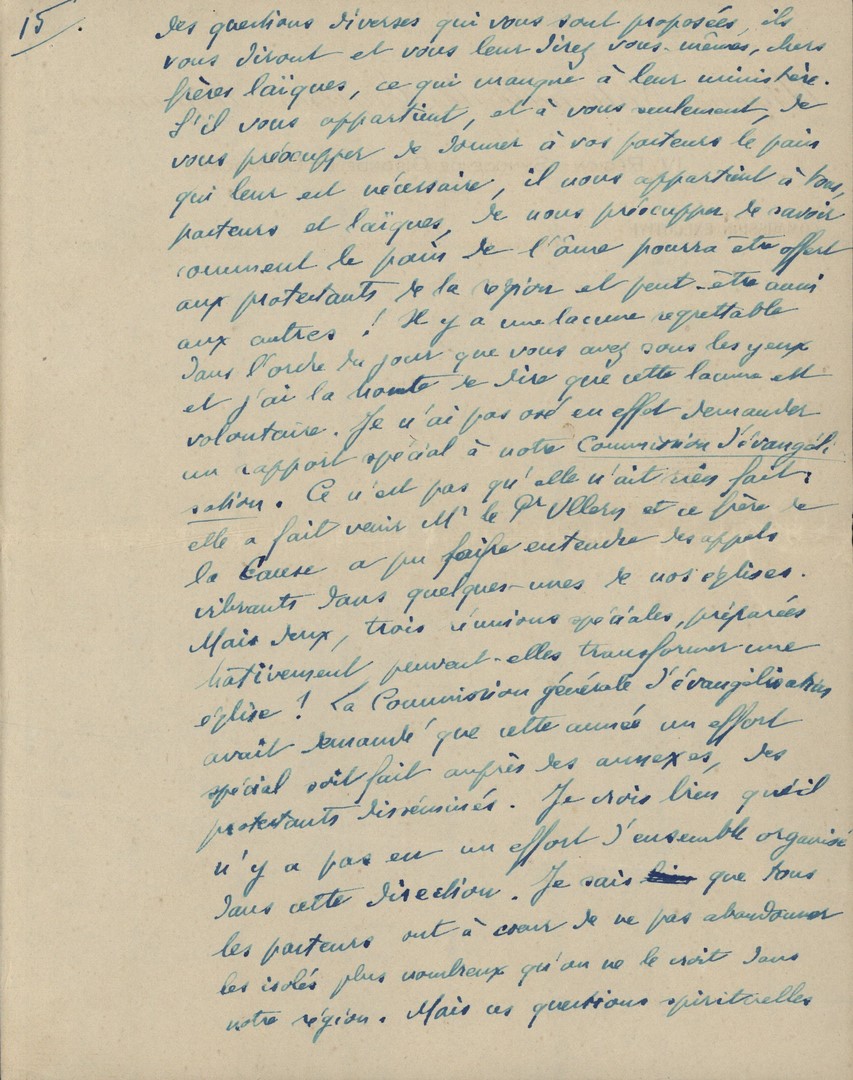 15/.
des questions diverses qui vous sont proposées, ils
vous diront et vous leur direz vous-mêmes, chers
frères laïques, ce qui manque à leur ministère.
S'il vous appartient, et à vous seulement, de
vous préoccupper de donner à vos pasteurs le pain
qui leur est nécessaire, il nous appartient à tous,
pasteurs et laïques, de nous préoccupper de savoir
comment le pain de l'âme pourra être offert
aux protestants de la région et peut-être aussi
aux autres ! Il y a une lacune regrettable
dans l'ordre du jour que vous avez sous les yeux
et j'ai la honte de dire que cette lacune est
volontaire. Je n'ai pas osé en effet demander
un rapport spécial à notre Commission d'évangéli
sation. Ce n'est pas qu'elle n'ait rien fait;
elle a fait venir Mr le Pr Ullern et ce frère de
la Cause a pu faire entendre des appels
vibrants dans quelques-unes de nos églises.
Mais deux, trois réunions spéciales, préparées
hativement peuvent-elles transformer une
église ! La Commission générale d'évangélisation
avait demandé que cette année un effort
spécial soit fait auprès des annexes, des
protestants disséminés. Je crois bien qu'il
n'y a pas eu un effort d'ensemble organisé
dans cette direction. Je sais que tous
les pasteurs ont à coeur de ne pas abandonner
les isolés plus nombreux qu'on ne le croit dans
notre région. Mais ces questions spirituelles